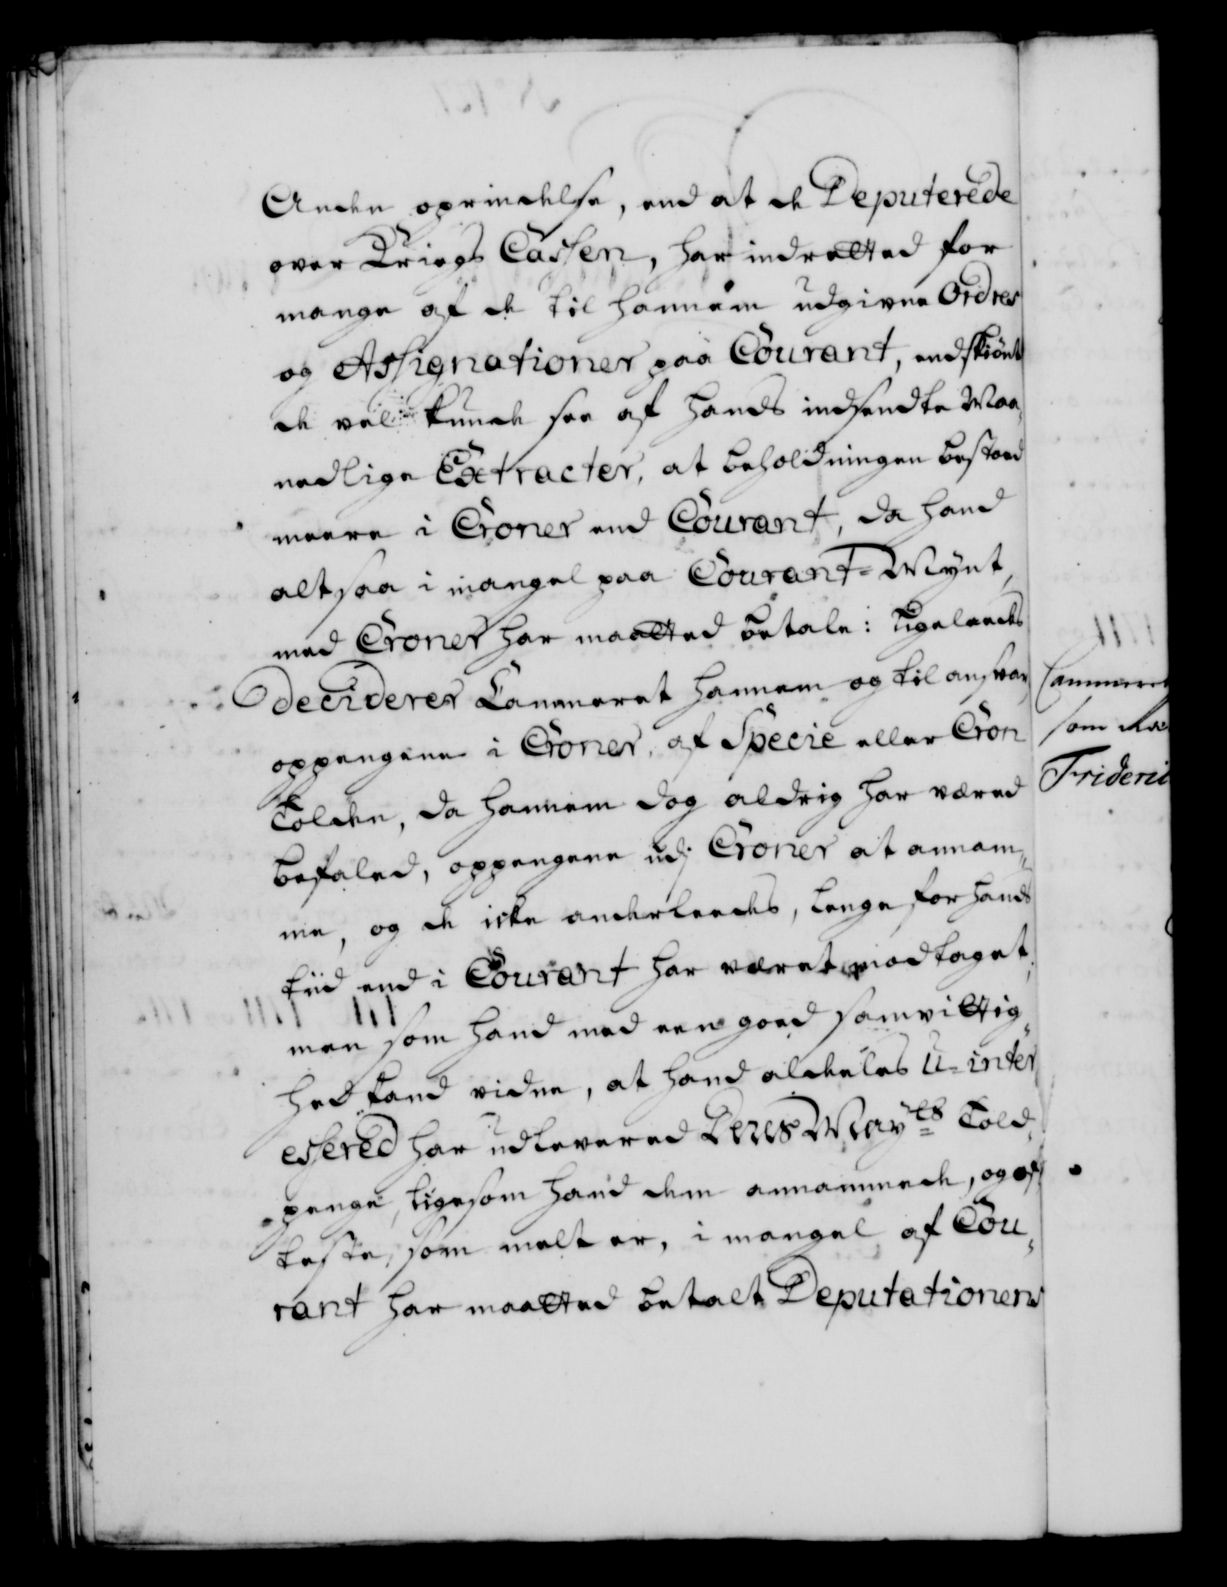 Anden oprindelse, end at de Deputerede
over Kriegs Cassen, har indretted for
mange af de til hannem udgivne Ordres
og Assignationer paa Courant, endskiønt
de vel kunde see af hands indsendte Maa„
nedlige Extracter, at beholdningen bestoed
meere i Croner end Courant, da hand
altsaa i mangel paa Courant-Mynt,
med Croner har maatted betale: Ligeleedes
Decideres Cammeret hannem og til ansvar,
oppengene i Croner, af Specie eller Cron
Tolden, da hannem dog aldrig har væred
befaled, oppengene udj Croner at annam„
me, og de icke anderleedes, lenge for hands
tiid end i Courant har været modtaget,
men som hand med een goed samvittig„
hed kand vidne, at hand aldeeles U-inter
essered har udlevered Deres Mayts Told„
penge, ligesom hand dem annammede, og of
teste, som melt er, i mangel af Cou„
rant har maatted betalt Deputationens
som
Frideric